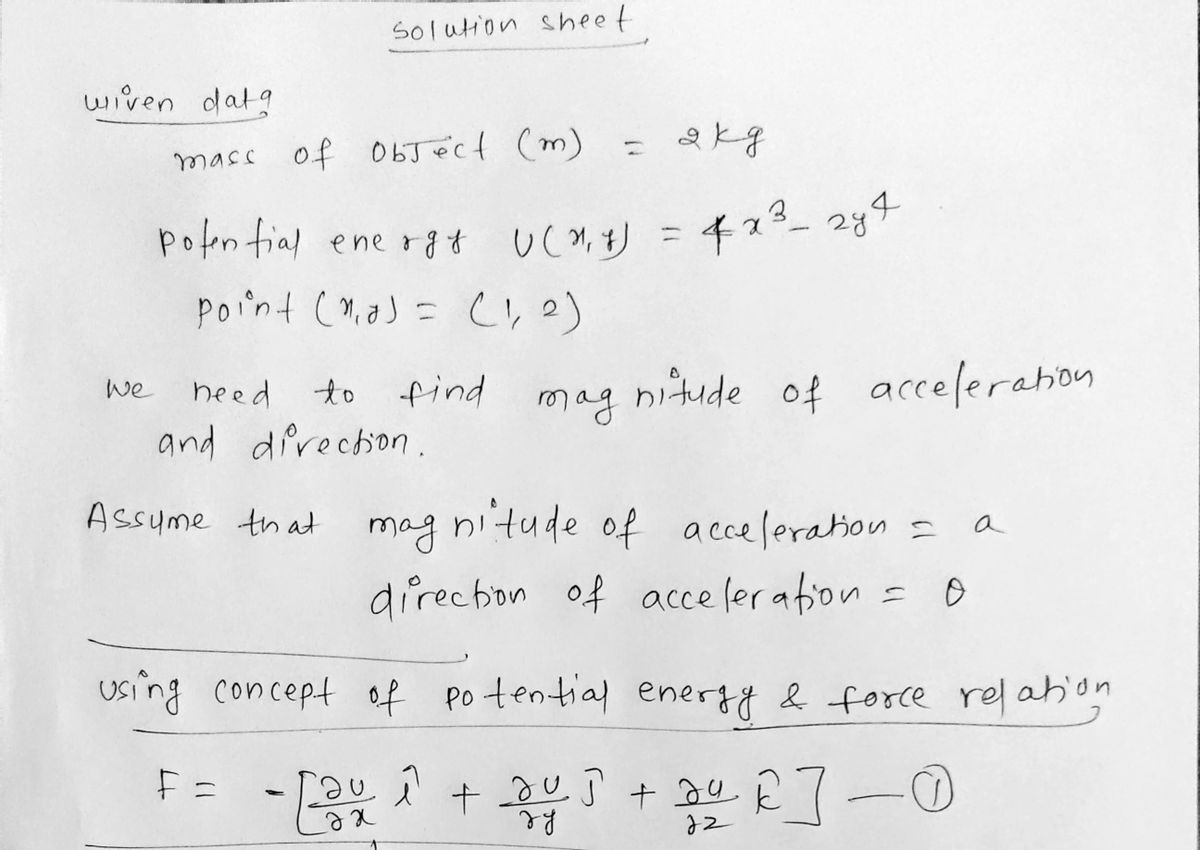 solution sheet
Given data
mass of object (m) = 2kg
potential energy U(x,y) = 4x³ - 2y⁴
point (x,y) = (1, 2)
We need to find magnitude of acceleration
and direction.
Assume that magnitude of acceleration = a
direction of acceleration = θ
using concept of potential energy & force relation
F = -[∂U/∂x î + ∂U/∂y ĵ + ∂U/∂z k̂] — ①